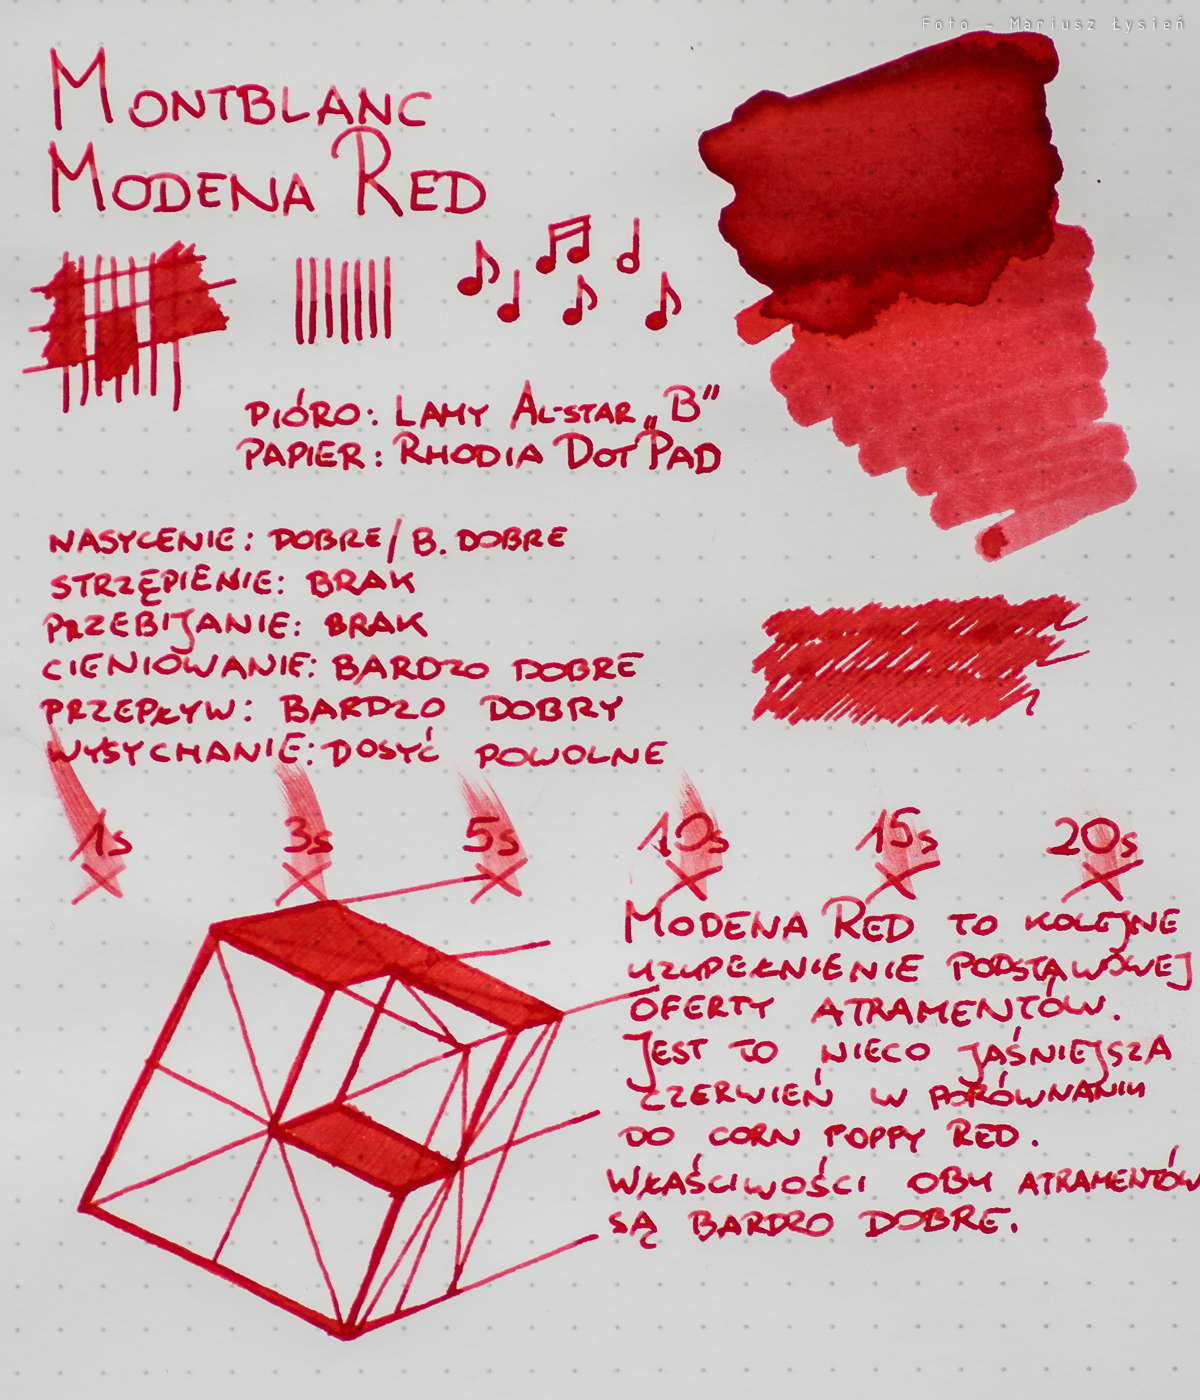 Foto - Mariusz Łysień
MONTBLANC
MODENA RED
PIÓRO: LAMY AL-STAR „B”
PAPIER: RHODIA DOT PAD
NASYCENIE: DOBRE/B. DOBRE
STRZĘPIENIE: BRAK
PRZEBIJANIE: BRAK
CIENIOWANIE: BARDZO DOBRE
PRZEPŁYW: BARDZO DOBRY
WYSYCHANIE: DOSYĆ POWOLNE
1s 3s 5s 10s 15s 20s
MODENA RED TO KOLEJNE
UZUPEŁNIENIE PODSTAWOWEJ
OFERTY ATRAMENTÓW.
JEST TO NIECO JAŚNIEJSZA
CZERWIEŃ W PORÓWNANIU
DO CORN POPPY RED.
WŁAŚCIWOŚCI OBU ATRAMENTÓW
SĄ BARDZO DOBRE.